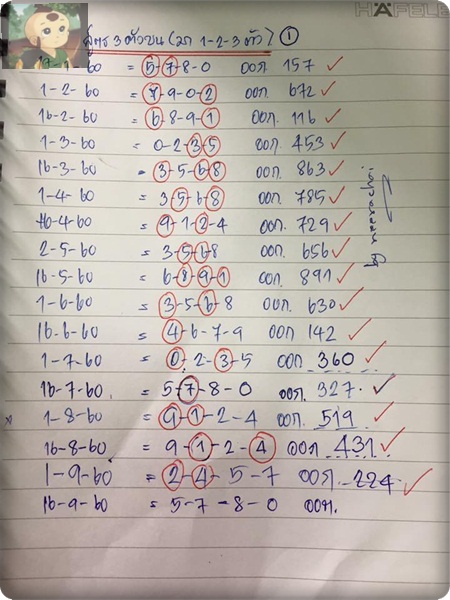 HÄFELE
สูตร 3 ตัวบน (มา 1-2-3 ตัว) ①
17-1-60 = 5-7-8-0 ออก 157 ✓
1-2-60 = 7-9-0-2 ออก 672 ✓
16-2-60 = 6-8-9-1 ออก 116 ✓
1-3-60 = 0-2-3-5 ออก. 453 ✓
16-3-60 = 3-5-6-8 ออก. 863 ✓
1-4-60 = 3-5-6-8 ออก. 785 ✓
16-4-60 = 9-1-2-4 ออก. 729 ✓
2-5-60 = 3-5-6-8 ออก. 656 ✓
16-5-60 = 6-8-9-1 ออก. 891 ✓
1-6-60 = 3-5-6-8 ออก. 630 ✓
16-6-60 = 4-6-7-9 ออก 142 ✓
1-7-60 = 0-2-3-5 ออก 360 ✓
16-7-60 = 5-7-8-0 ออก. 327. ✓
1-8-60 = 9-1-2-4 ออก. 519 ✓
16-8-60 = 9-1-2-4 ออก 431 ✓
1-9-60 = 2-4-5-7 ออก. 224 ✓
16-9-60 = 5-7-8-0 ออก.